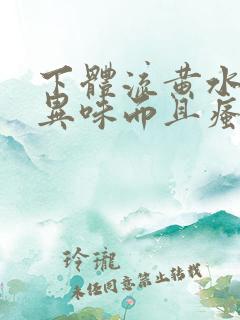 下體流黃水
異味而且瘙
玲瓏
未經同意禁止轉載